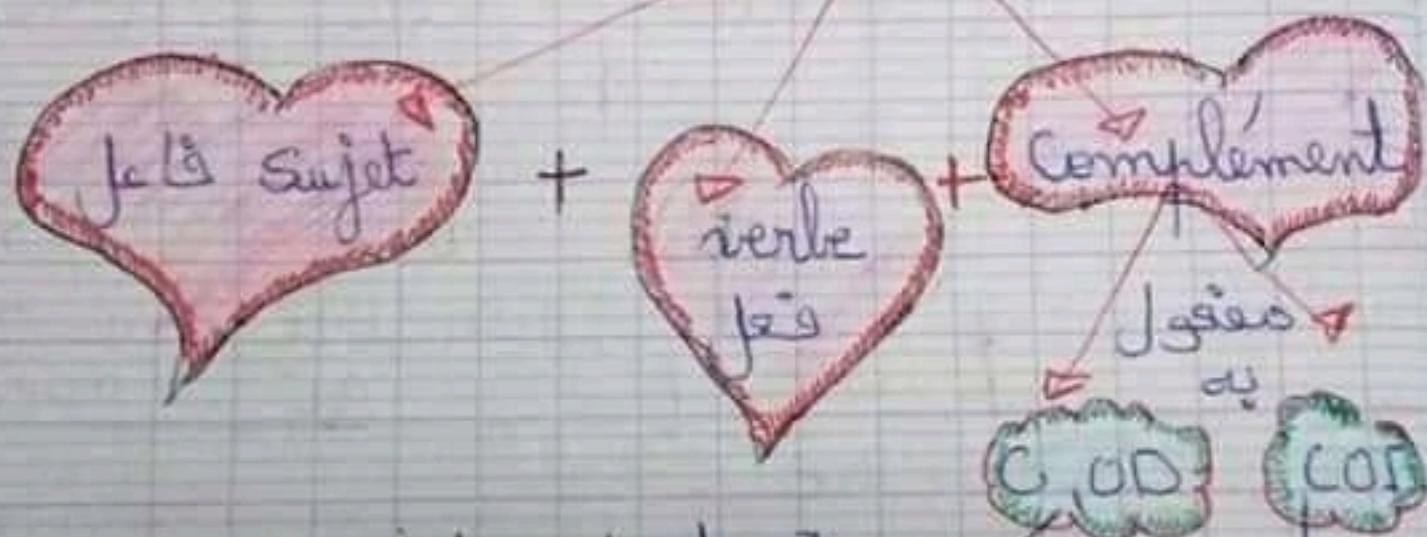 فاعل Sujet
+
verbe
فعل
+
Complément
مفعول
به
COD
COI